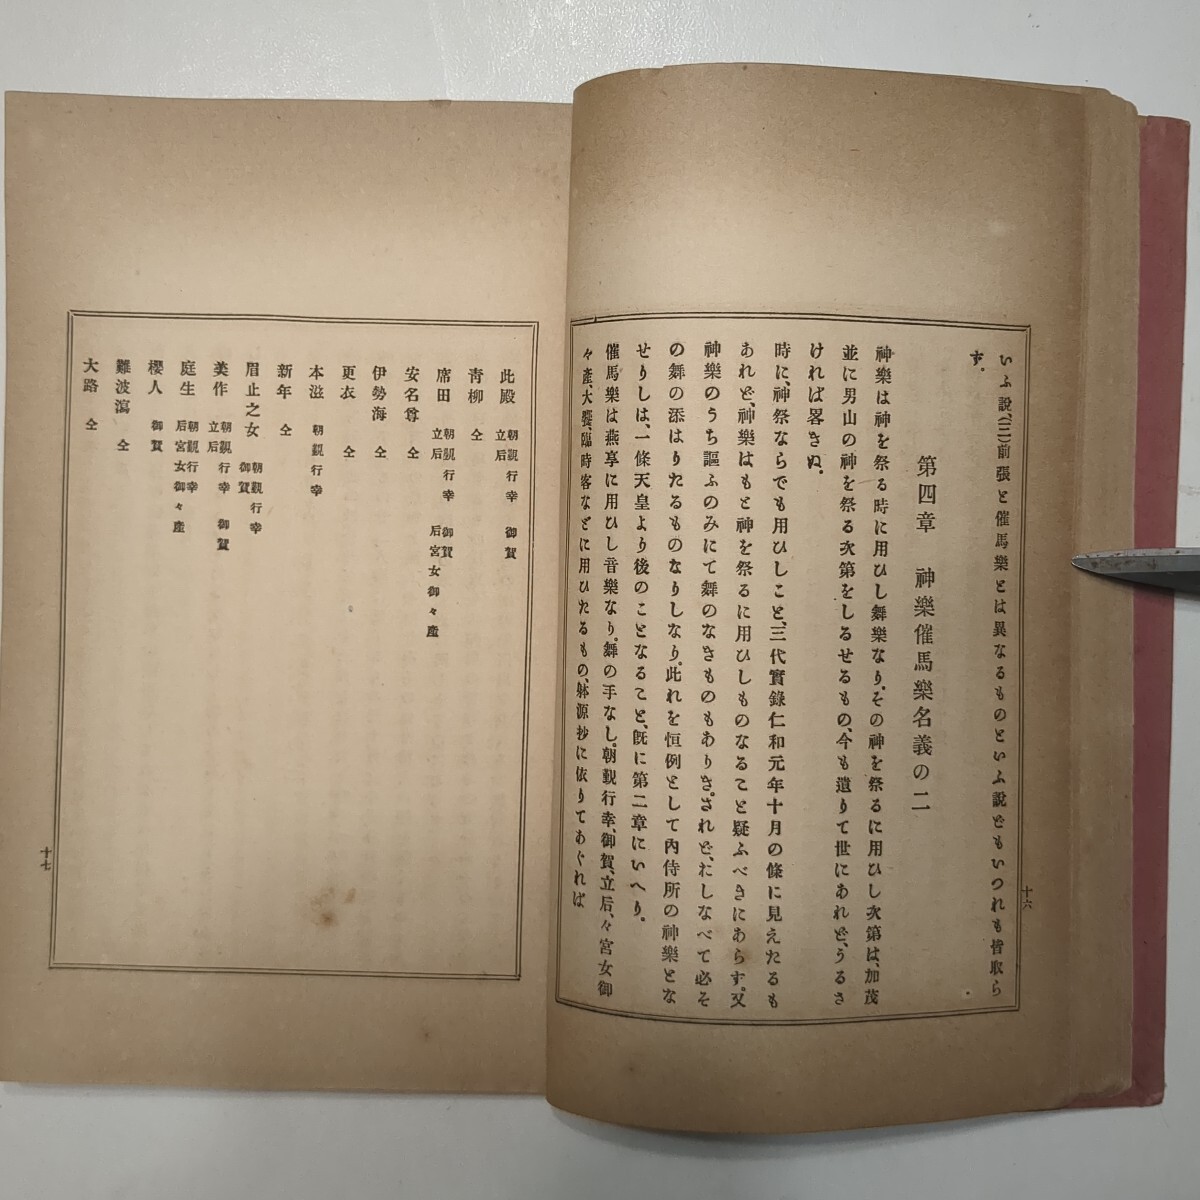 いふ說、(三)前張と催馬樂とは異なるものといふ說どもいつれも皆取ら
ず。
第四章　神樂催馬樂名義の二
神樂は神を祭る時に用ひし舞樂なり。その神を祭るに用ひし次第は、加茂
並に男山の神を祭る次第をしるせるもの、今も遺りて世にあれど、うるさ
ければ畧きぬ。
時に、神祭ならでも用ひしこと、三代實錄仁和元年十月の條に見えたるも
あれど、神樂はもと神を祭るに用ひしものなること疑ふべきにあらず。又
神樂のうち謳ふのみにて舞のなきものもありき。されど、おしなべて必そ
の舞の添はりたるものなりしなり。此れを恒例として內侍所の神樂とな
せりしは、一條天皇より後のことなること、旣に第二章にいへり。
催馬樂は燕享に用ひし音樂なり。舞の手なし。朝覲行幸、御賀、立后、々宮女御
々產、大饗、臨時客などに用ひたるもの、躰源抄に依りてあぐれば
十六
此殿　朝覲行幸　御賀　立后
靑柳　仝
席田　朝覲行幸　御賀　立后　后宮女御々產
安名尊　仝
伊勢海　仝
更衣　仝
本滋　朝覲行幸
新年　仝
眉止之女　朝覲行幸　御賀
美作　朝覲行幸　御賀　立后
庭生　朝覲行幸　后宮女御々產
櫻人　御賀
難波瀉　仝
大路　仝
十七